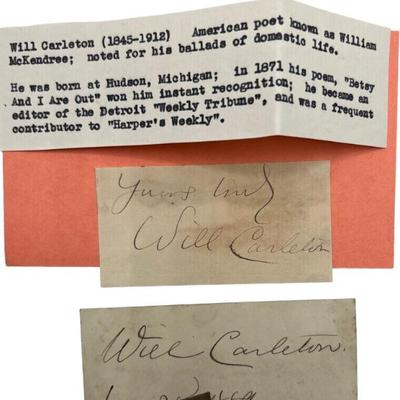 Will Carleton (1845-1912) American poet known as William
McKendree; noted for his ballads of domestic life.
He was born at Hudson, Michigan; in 1871 his poem, "Betsy
And I Are Out" won him instant recognition; he became an
editor of the Detroit "Weekly Tribune", and was a frequent
contributor to "Harper's Weekly".
Yours truly
Will Carleton
Will Carleton.